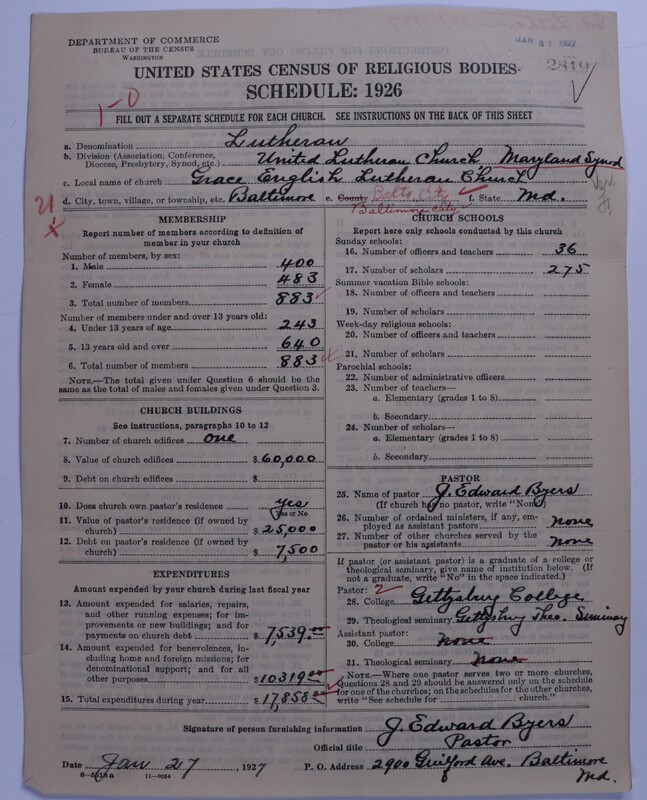 DEPARTMENT OF COMMERCE
BUREAU OF THE CENSUS
WASHINGTON
JAN 31 1927
2819
UNITED STATES CENSUS OF RELIGIOUS BODIES
SCHEDULE: 1926
1-0
FILL OUT A SEPARATE SCHEDULE FOR EACH CHURCH. SEE INSTRUCTIONS ON THE BACK OF THIS SHEET
a. Denomination Lutheran
b. Division (Association, Conference, Diocese, Presbytery, Synod, etc.) United Lutheran Church Maryland Synod
c. Local name of church Grace English Lutheran Church
d. City, town, village, or township, etc. Baltimore e. County Balto. City Baltimore City f. State Md.
21
x
MEMBERSHIP
Report number of members according to definition of member in your church
Number of members, by sex:
1. Male 400
2. Female 483
3. Total number of members 883
Number of members under and over 13 years old:
4. Under 13 years of age 243
5. 13 years old and over 640
6. Total number of members 883
NOTE.—The total given under Question 6 should be the same as the total of males and females given under Question 3.
CHURCH BUILDINGS
See instructions, paragraphs 10 to 12
7. Number of church edifices one
8. Value of church edifices $ 60,000
9. Debt on church edifices $
10. Does church own pastor's residence yes
Yes or No
11. Value of pastor's residence (if owned by church) $ 25,000
12. Debt on pastor's residence (if owned by church) $ 7,500
EXPENDITURES
Amount expended by your church during last fiscal year
13. Amount expended for salaries, repairs, and other running expenses; for improvements or new buildings; and for payments on church debt $ 7,539.00
14. Amount expended for benevolences, including home and foreign missions; for denominational support; and for all other purposes $ 10319.00
15. Total expenditures during year $ 17,858.00
CHURCH SCHOOLS
Report here only schools conducted by this church
Sunday schools:
16. Number of officers and teachers 36
17. Number of scholars 275
Summer vacation Bible schools:
18. Number of officers and teachers
19. Number of scholars
Week-day religious schools:
20. Number of officers and teachers
21. Number of scholars
Parochial schools:
22. Number of administrative officers
23. Number of teachers—
a. Elementary (grades 1 to 8)
b. Secondary
24. Number of scholars—
a. Elementary (grades 1 to 8)
b. Secondary
PASTOR
25. Name of pastor J. Edward Byers
(If church has no pastor, write "None")
26. Number of ordained ministers, if any, employed as assistant pastors none
27. Number of other churches served by the pastor or his assistants none
If pastor (or assistant pastor) is a graduate of a college or theological seminary, give name of institution below. (If not a graduate, write "No" in the space indicated.)
Pastor: 2
28. College Gettysburg College
29. Theological seminary Gettysburg Theo. Seminary
Assistant pastor:
30. College None
31. Theological seminary None
NOTE.—Where one pastor serves two or more churches, Questions 28 and 29 should be answered only on the schedule for one of the churches; on the schedules for the other churches, write "See schedule for church."
Signature of person furnishing information J. Edward Byers
Official title Pastor
Date Jan 27, 1927 P. O. Address 2900 Guilford Ave. Baltimore Md.
8-5518a 11-9054